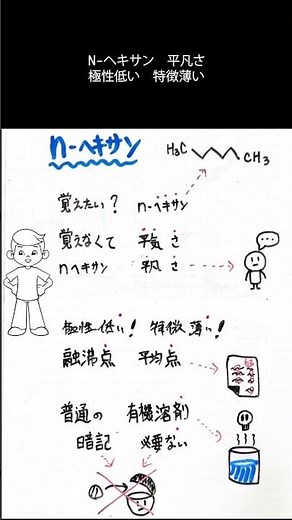 N-ヘキサン 平凡さ
極性低い 特徴薄い
n-ヘキサン
H₃C CH₃
覚えたい? n-ヘキサン
覚えなくて 平気さ
nヘキサン 平凡さ
極性低い! 特徴薄い!
融沸点 平均点
普通の 有機溶剤
暗記 必要ない